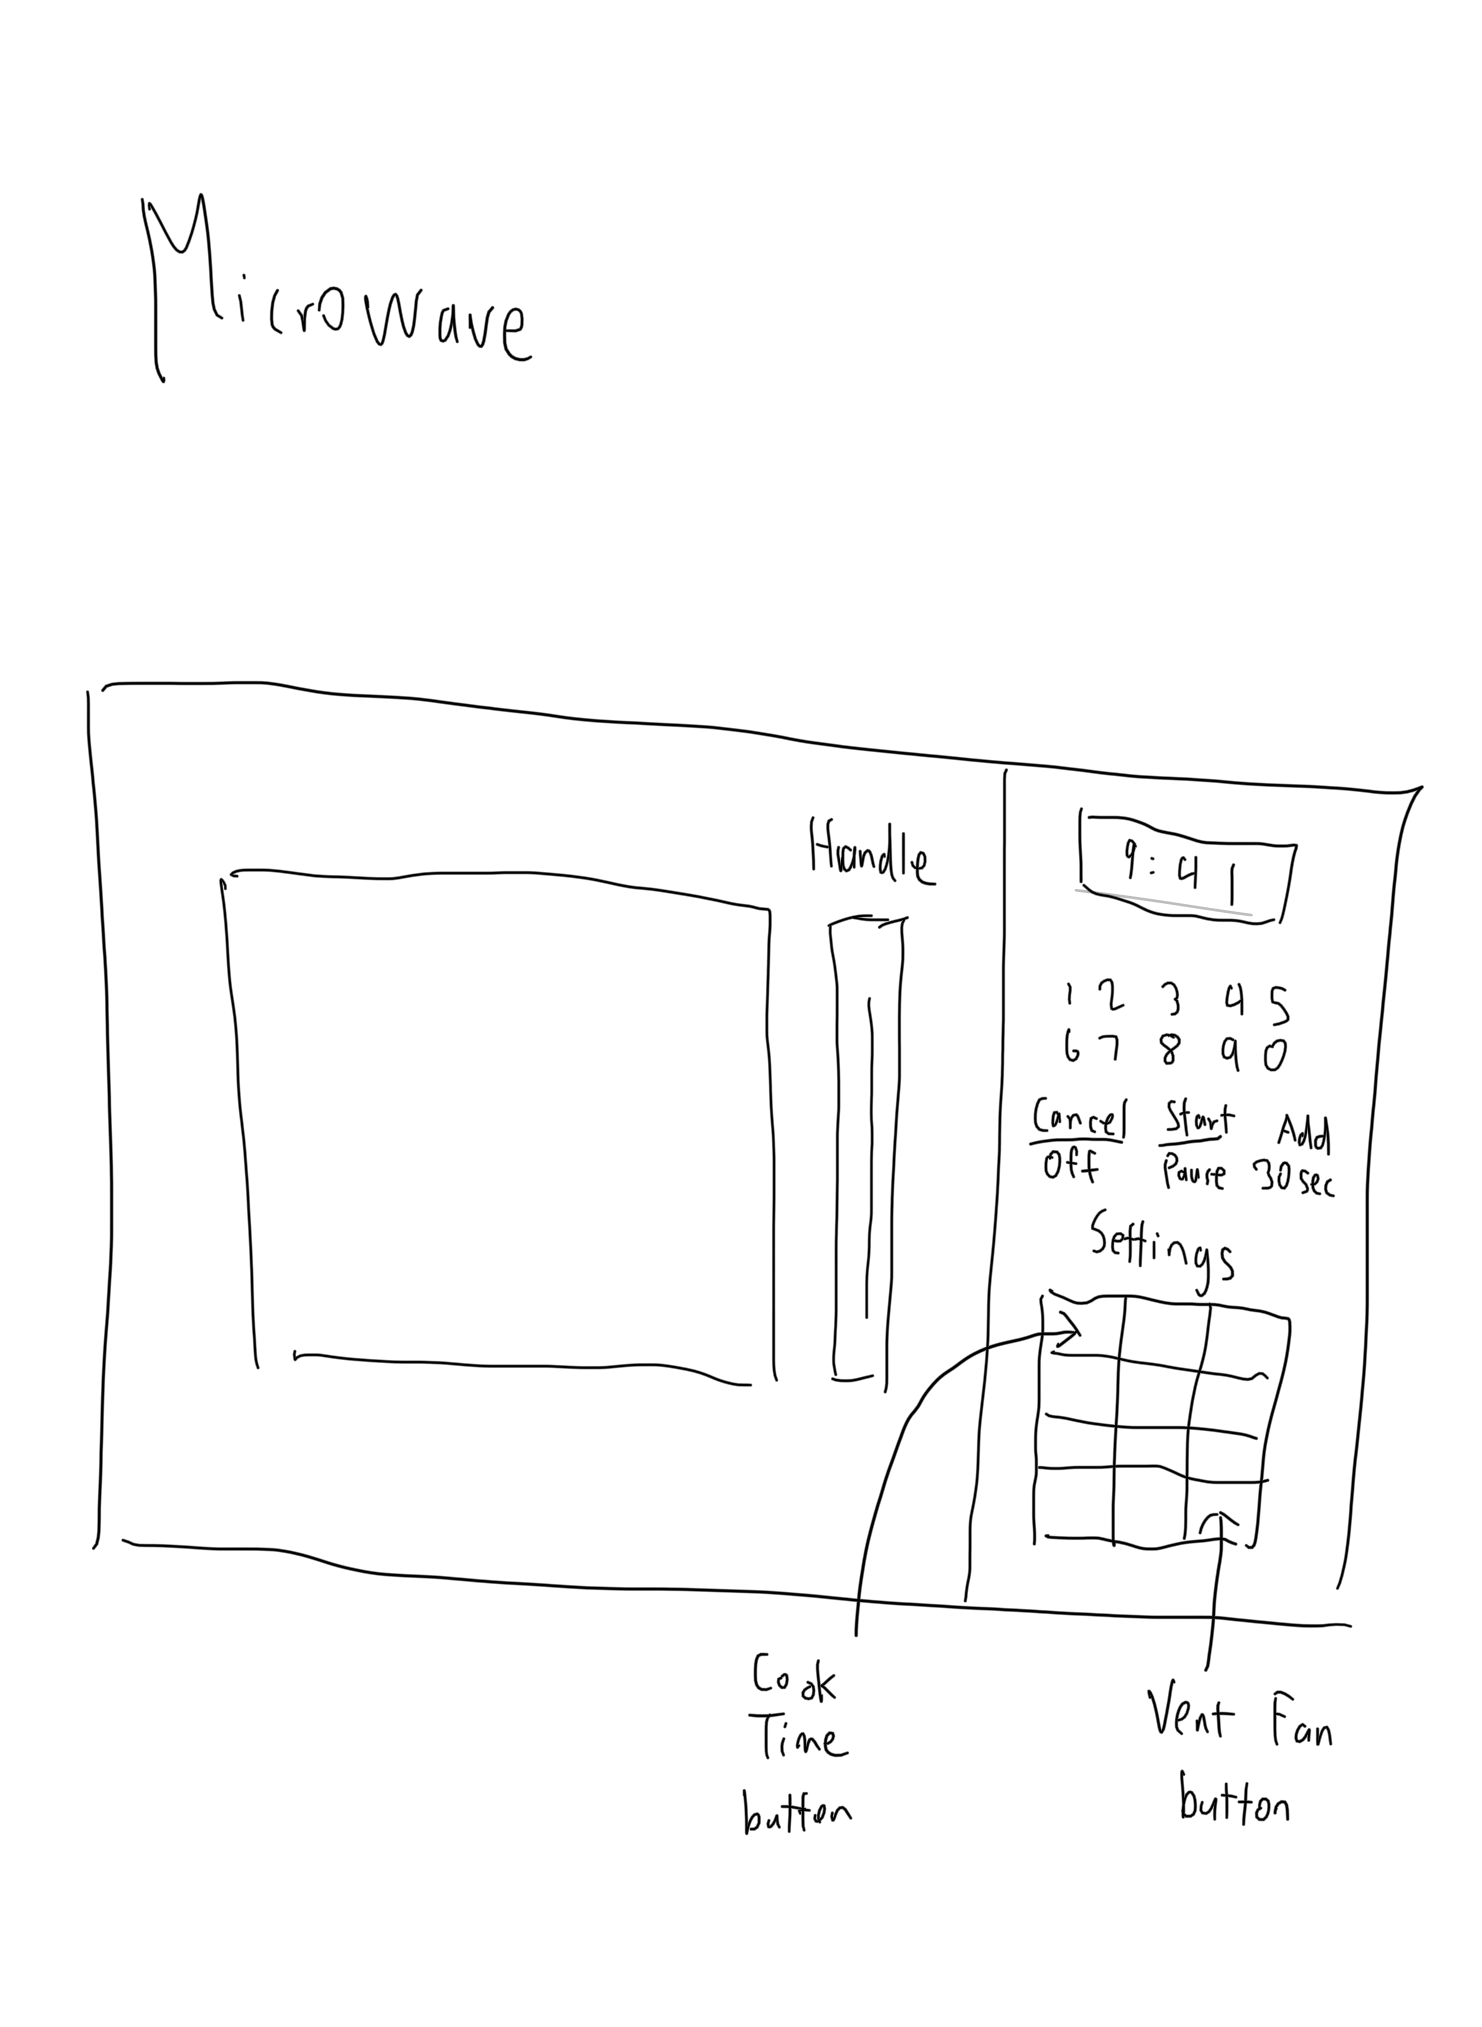 Microwave
Handle
9:41
1 2 3 4 5
6 7 8 9 0
Cancel Start Add
Off Pause 30 sec
Settings
Cook
Time
button
Vent Fan
button